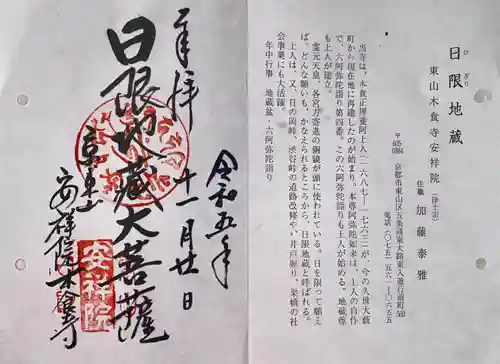 日限地蔵
ひぎり
東山木食寺安祥院(浄土宗)
住職 加藤泰雅
〒605-0864
京都市東山区五条通東大路東入遊行前町560
電話(〇七五)五六一-〇六五五
当寺は、木食正禅養阿上人(一六八七-一七六三)が、今の久世大藪
町から現在地に再建したのが始まり。本尊阿弥陀如来は、上人の自作
で、六阿弥陀詣り第四番、この六阿弥陀詣りも上人が始める。地蔵尊
も上人が建立。
霊元天皇、各宮方寄進の銅鏡が頭に使われている。日を限って願え
ば、どんな願いも、かなえられるところから、日限地蔵と呼ばれる。
上人は、又、日の岡峠、渋谷峠の道路改修や、井戸掘り、架橋の社
会事業にも大活躍。
年中行事 地蔵盆・六阿弥陀詣り
奉拝
日限地蔵大菩薩
京東山
安祥院木食寺
令和五年
十一月廿日
安祥院